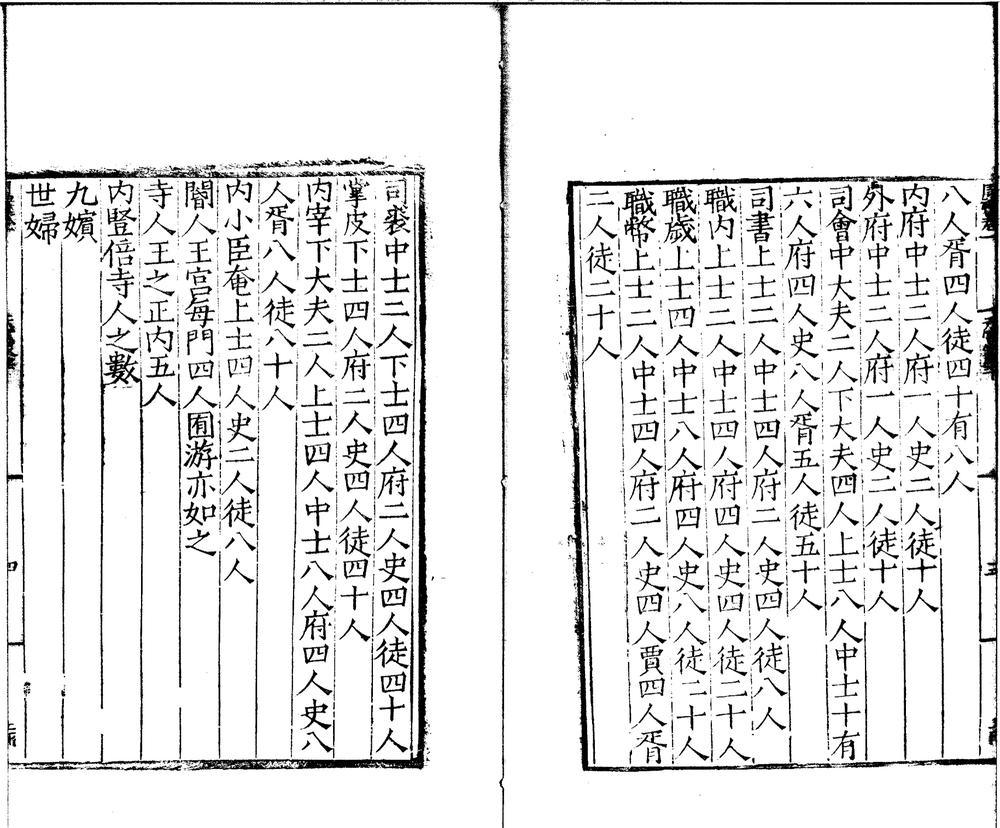 八人胥四人徒四十有八人
内府中士二人府一人史二人徒十人
外府中士二人府一人史二人徒十人
司會中大夫二人下大夫四人上士八人中士十有
六人府四人史八人胥五人徒五十人
司書上士二人中士四人府二人史四人徒八人
職内上士二人中士四人府四人史四人徒二十人
職歳上士四人中士八人府四人史八人徒二十人
職幣上士二人中士四人府二人史四人賈四人胥
二人徒二十人
司裘中士二人下士四人府二人史四人徒四十人
掌皮下士四人府二人史四人徒四十人
内宰下大夫二人上士四人中士八人府四人史八
人胥八人徒八十人
内小臣奄上士四人史二人徒八人
閽人王宫每門四人囿游亦如之
寺人王之正内五人
内豎倍寺人之數
九嬪
世婦